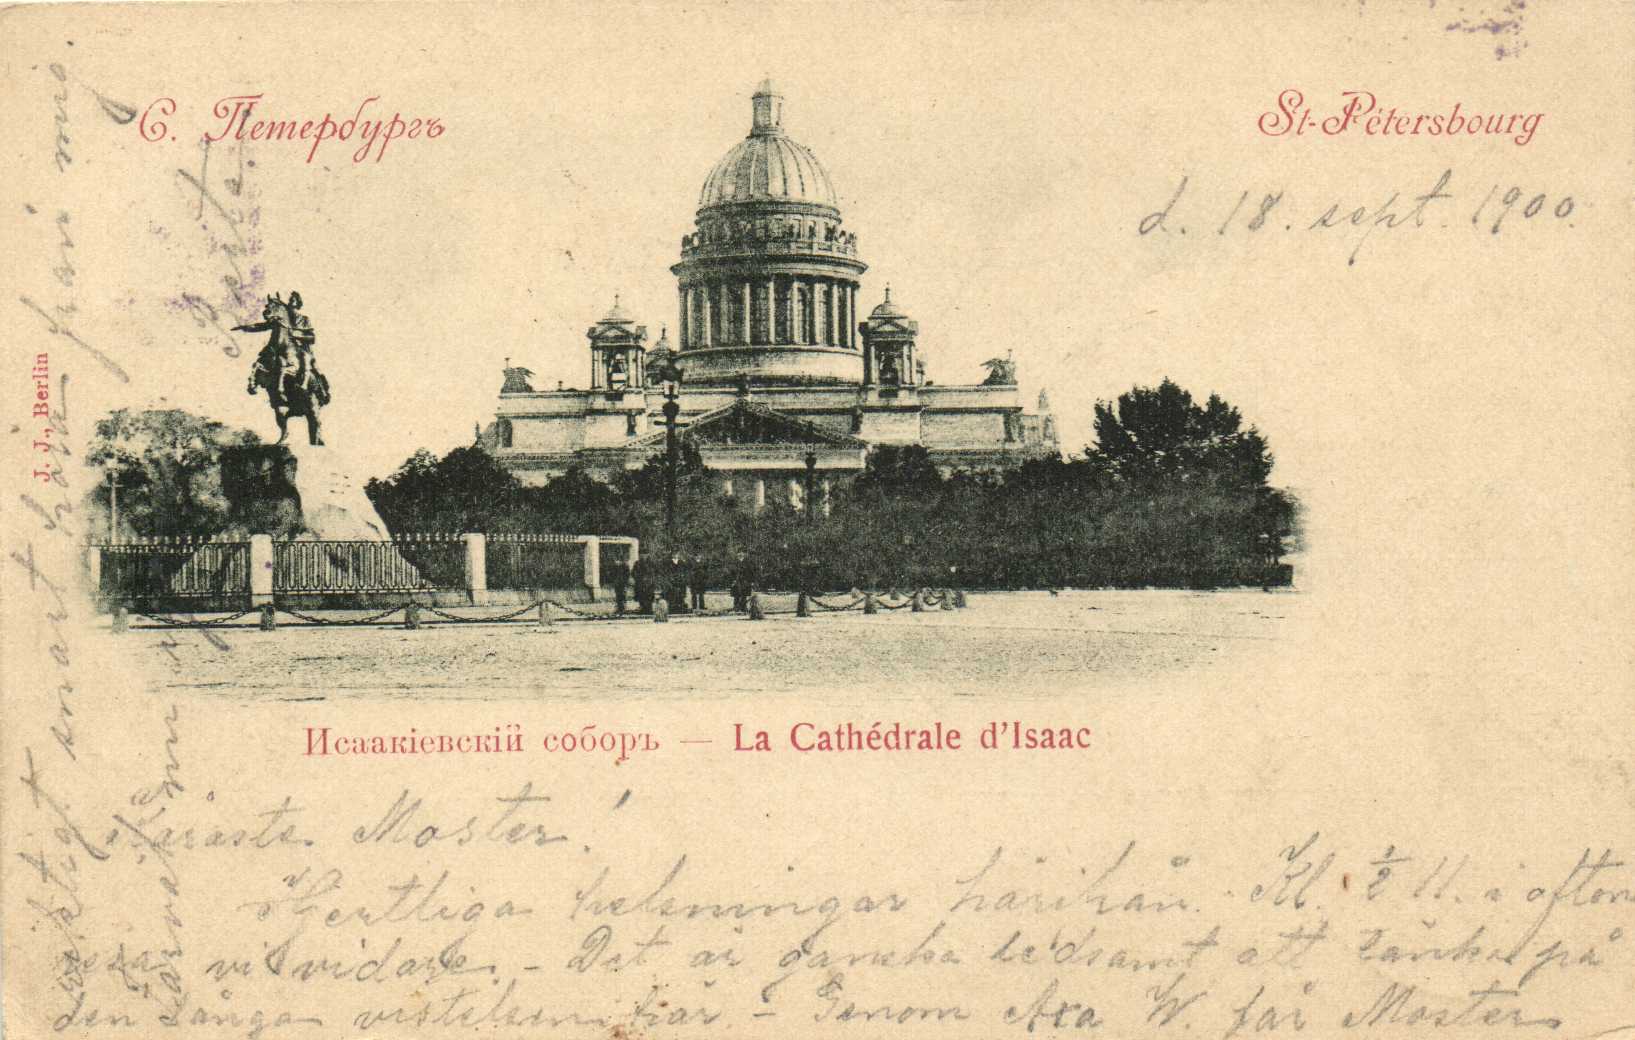 С. Петербургъ
St-Pétersbourg
d. 18. sept. 1900.
J. J., Berlin
Исаакіевскій соборъ — La Cathédrale d'Isaac
Käraste Moster!
Hjertliga helsningar härifrån. Kl. ½ 11. i afton
resa vi vidare. - Det är ganska ledsamt att tänka på
den långa vistelsen här. - Genom Axa W. får Moster
riktigt snart höra från mig.
Bertte.